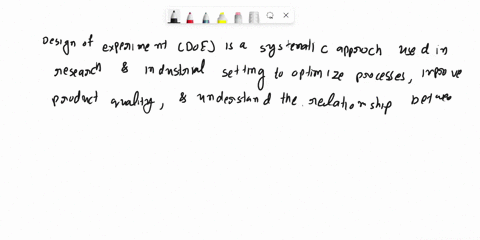 Design of experiment (DoE) is a systematic approch used in
research & industrial setting to optimize processes, improve
product quality, & understand the relationship betwee